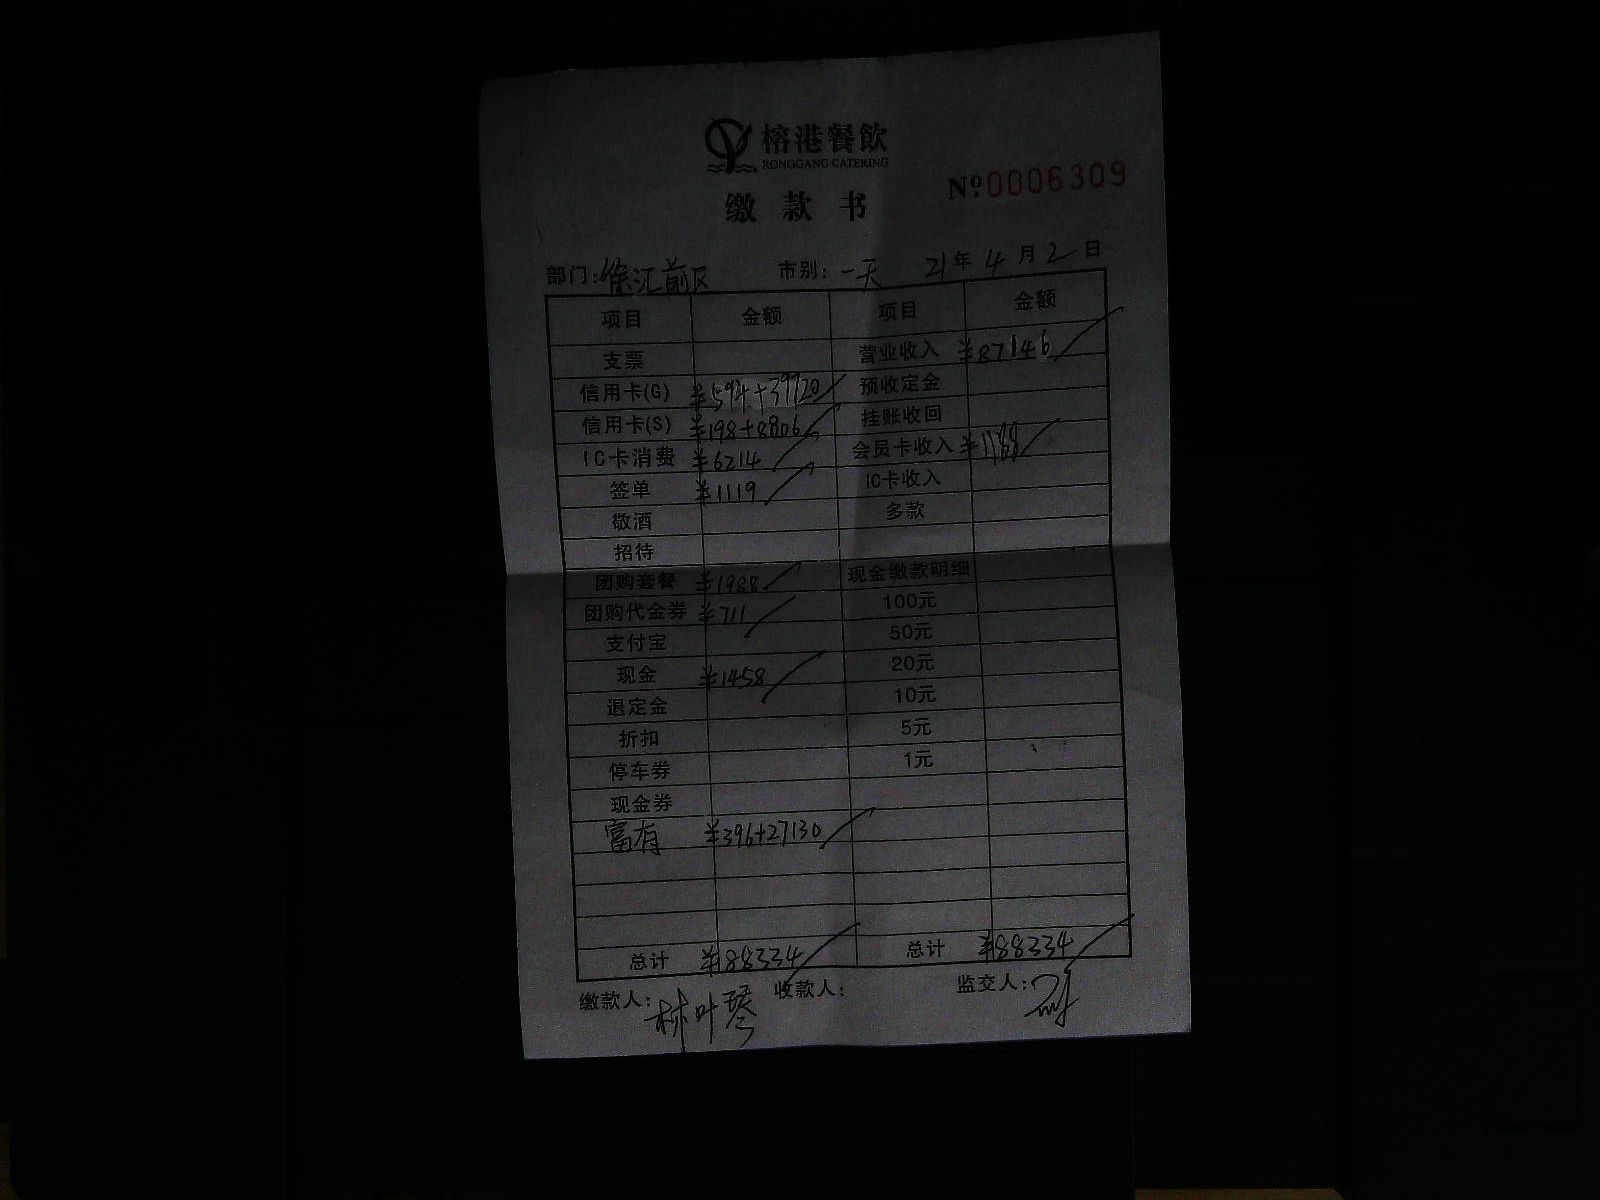 榕港餐飲
RONGGANG CATERING
缴款书
Nº0006309
部门:徐汇前区 市别:一天 21年4月2日
项目 金额 项目 金额
支票 营业收入 ¥87146
信用卡(G) ¥594+39720 预收定金
信用卡(S) ¥198+8806 挂账收回
IC卡消费 ¥6214 会员卡收入 ¥1188
签单 ¥1119 IC卡收入
敬酒 多款
招待
团购套餐 ¥1988 现金缴款明细
团购代金券 ¥711 100元
支付宝 50元
现金 ¥1458 20元
退定金 10元
折扣 5元
停车券 1元
现金券
富有 ¥396+27130
总计 ¥88334 总计 ¥88334
缴款人:林叶琴 收款人: 监交人: